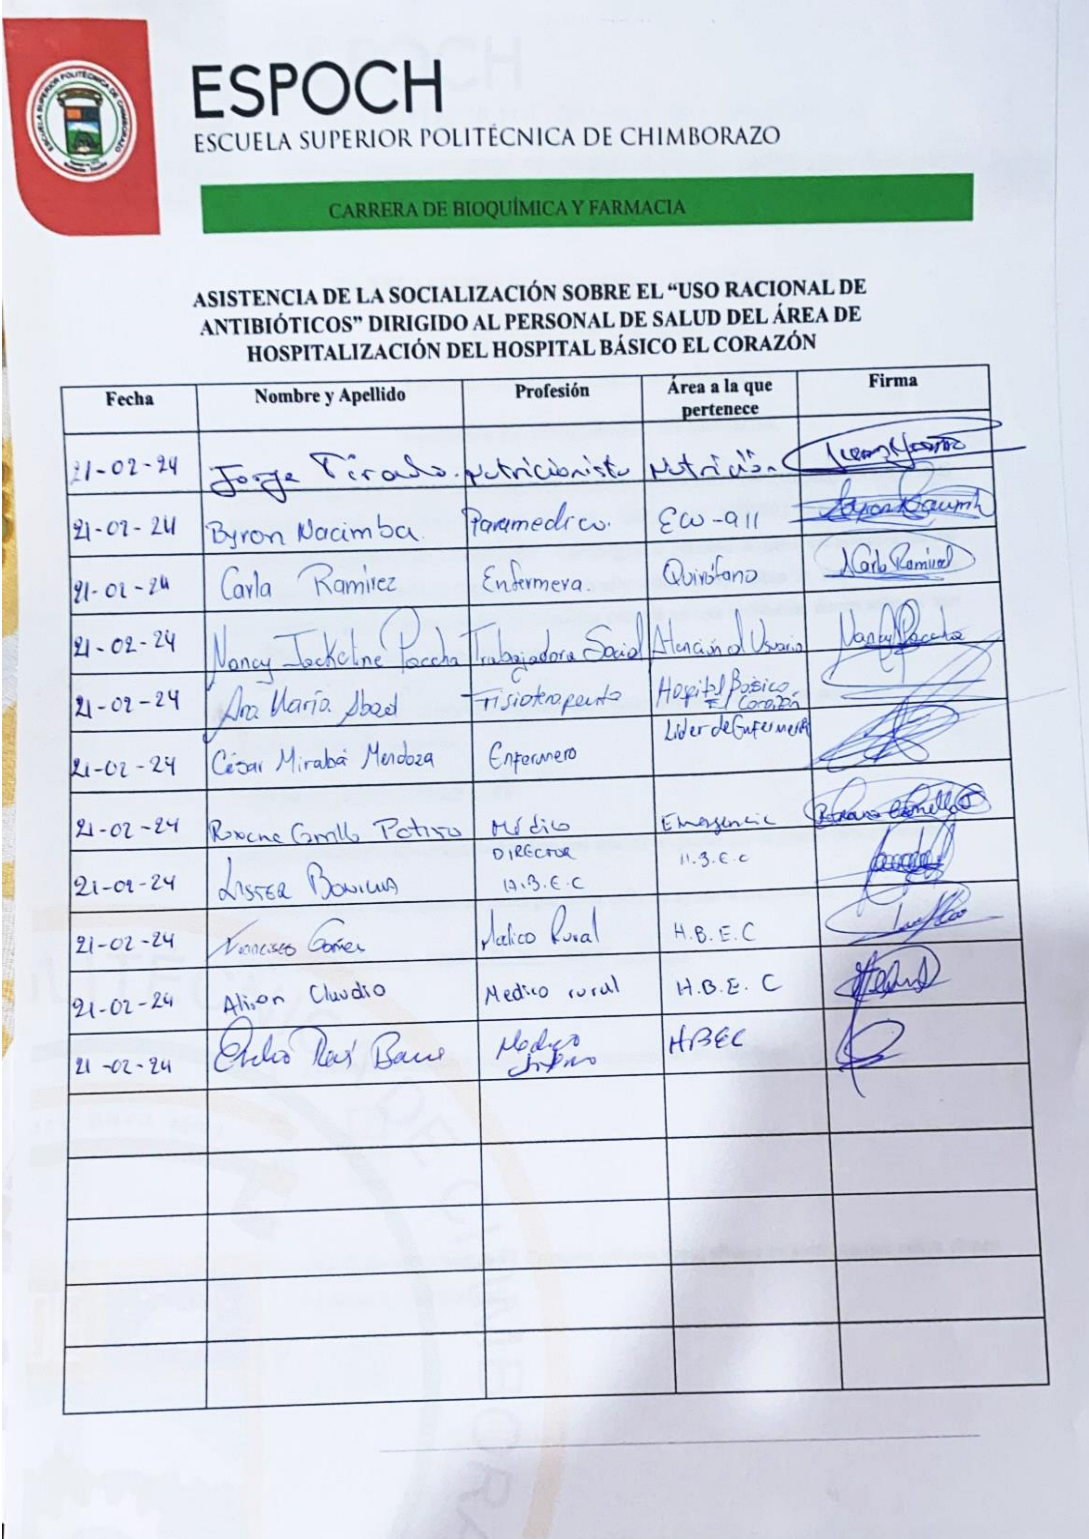 ESCUELA SUPERIOR POLITÉCNICA DE CHIMBORAZO
ESPOCH
ESCUELA SUPERIOR POLITÉCNICA DE CHIMBORAZO
CARRERA DE BIOQUÍMICA Y FARMACIA
ASISTENCIA DE LA SOCIALIZACIÓN SOBRE EL “USO RACIONAL DE
ANTIBIÓTICOS” DIRIGIDO AL PERSONAL DE SALUD DEL ÁREA DE
HOSPITALIZACIÓN DEL HOSPITAL BÁSICO EL CORAZÓN
Fecha Nombre y Apellido Profesión Área a la que
pertenece Firma
21-02-24 Jorge Tirado. Nutricionista Nutrición
21-02-24 Byron Nacimba. Paramedico. ECU-911
21-02-24 Carla Ramírez Enfermera. Quirófano
21-02-24 Nancy Jackeline Paccha Trabajadora Social Atención al Usuario Nancy Paccha
21-02-24 Ana María Abad Fisioterapeuta Hospital Básico
El Corazón
21-02-24 César Mirabá Mendoza Enfermero Lider de Enfermería
21-02-24 Médico Emergencia
21-02-24 LISTER BONILLA DIRECTOR
H.B.E.C H.B.E.C
21-02-24 Gómez Medico Rural H.B.E.C
21-02-24 Alison Claudio Medico rural H.B.E.C
21-02-24 Medico HBEC